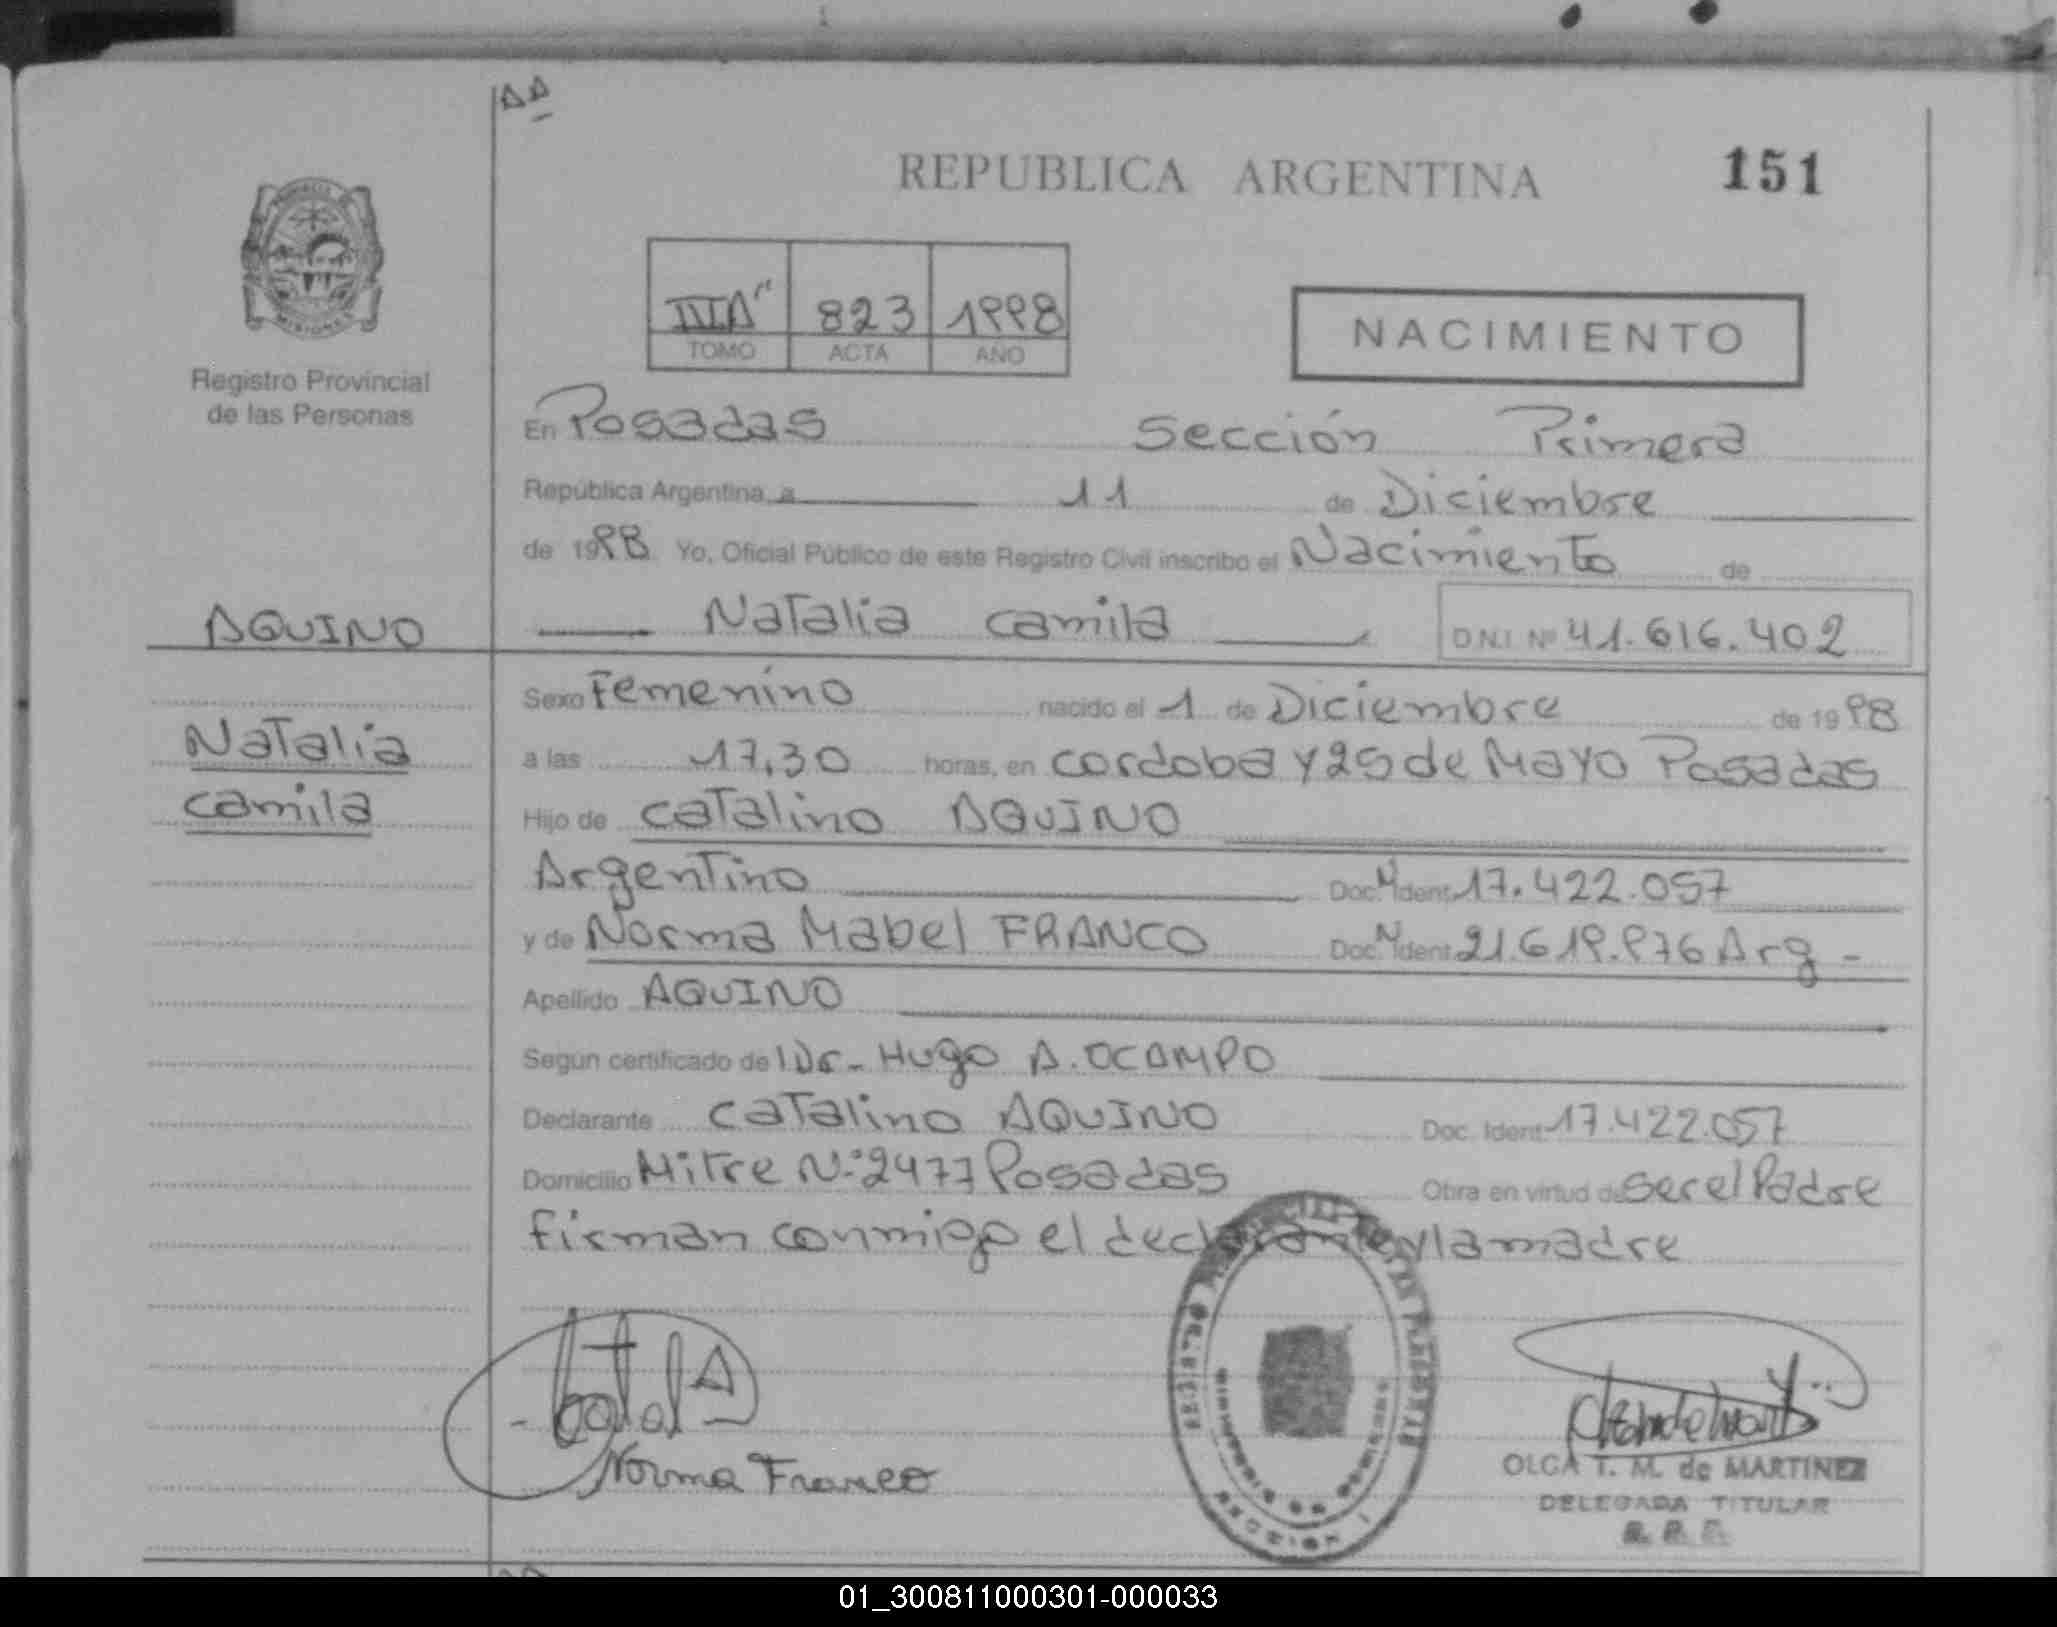 AA
REPUBLICA ARGENTINA
151
IIIA" 823 1998
TOMO ACTA AÑO
NACIMIENTO
MISIONES
Registro Provincial
de las Personas
En Posadas Sección Primera
República Argentina, a 11 de Diciembre
de 1998 Yo, Oficial Público de este Registro Civil inscribo el Nacimiento de
AQUINO
Natalia Camila
D.N.I. Nº 41.616.402
Sexo Femenino nacido el 1 de Diciembre de 1998
Natalia
Camila
a las 17,30 horas, en Cordoba y 25 de Mayo Posadas
Hijo de Catalino AQUINO
Argentino Doc. N Ident. 17.422.057
y de Norma Mabel FRANCO Doc. N Ident. 21.619.976 Arg -
Apellido AQUINO
Según certificado de l Dr- Hugo A. OCAMPO
Declarante Catalino AQUINO Doc. Ident. 17.422.057
Domicilio Mitre Nº 2477 Posadas Obra en virtud de ser el Padre
firman conmigo el declarante y la madre
Catal A
Norma Franco
REGISTRO PROVINCIAL DE LAS PERSONAS
SECCION I
OLGA T. M. de MARTINEZ
DELEGADA TITULAR
R. P. P.
01_300811000301-000033